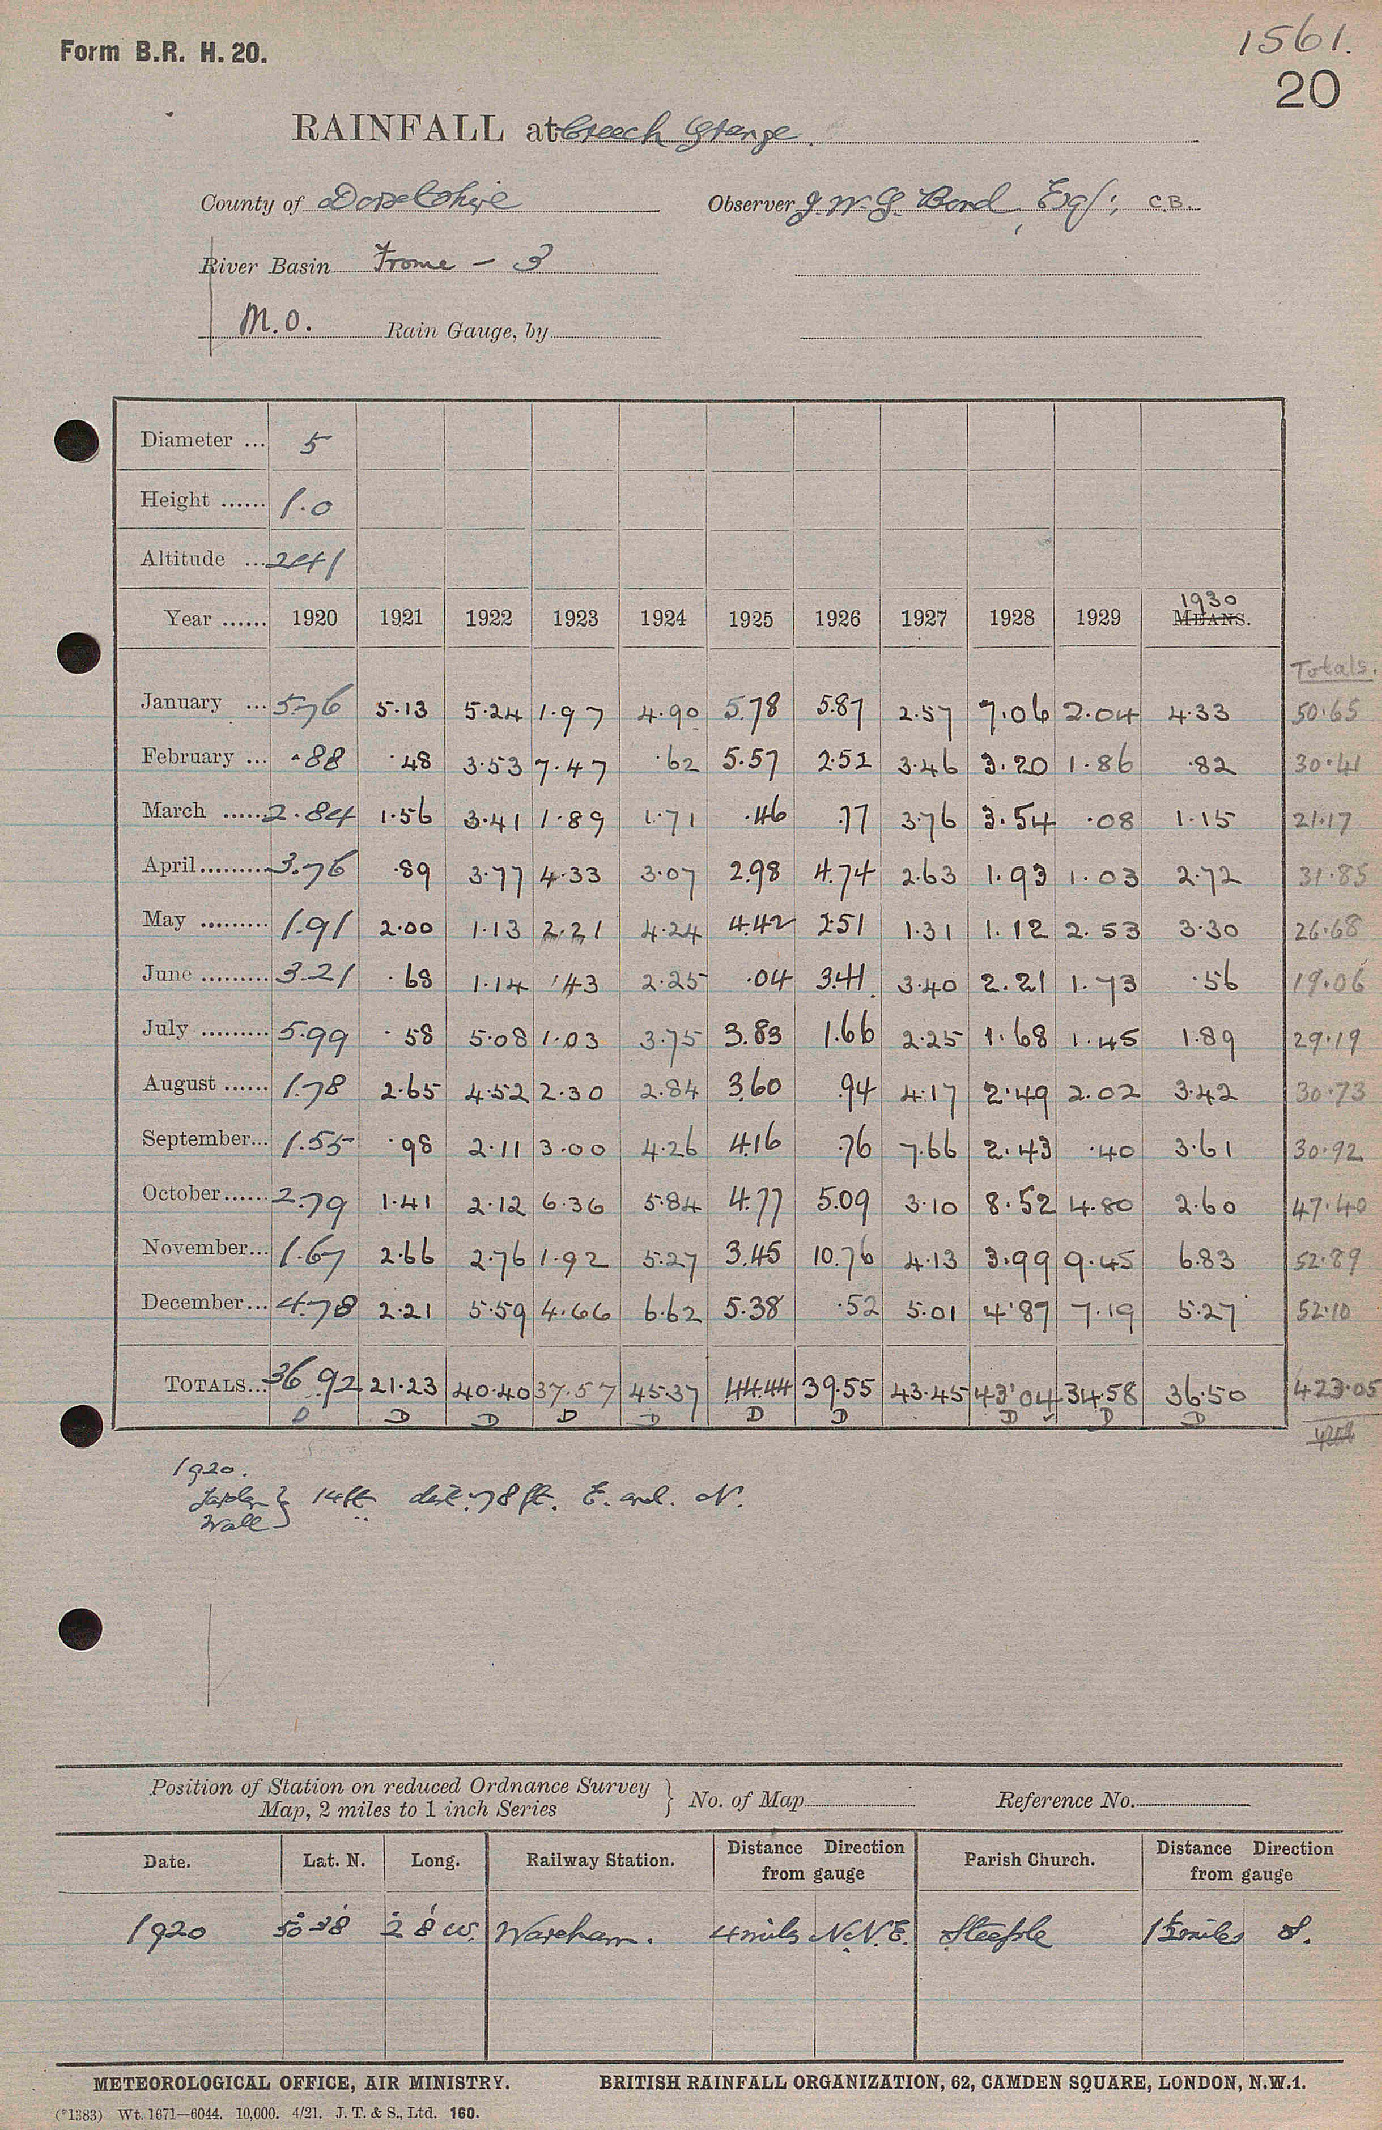 Form B.R. H. 20.
1561.
20
RAINFALL at Creech Grange.
County of Dorsetshire Observer J. W. G. Bond, Esq; C.B.
River Basin Frome - 3
M.O. Rain Gauge, by
Diameter ... 5
Height ...... 1.0
Altitude ... 241
Year ...... 1920 1921 1922 1923 1924 1925 1926 1927 1928 1929 1930 MEANS.
Totals.
January ... 5.76 5.13 5.24 1.97 4.90 5.78 5.87 2.57 7.06 2.04 4.33 50.65
February ... .88 .48 3.53 7.47 .62 5.57 2.52 3.46 3.20 1.86 .82 30.41
March ...... 2.84 1.56 3.41 1.89 1.71 .46 .77 3.76 3.54 .08 1.15 21.17
April ......... 3.76 .89 3.77 4.33 3.07 2.98 4.74 2.63 1.93 1.03 2.72 31.85
May ......... 1.91 2.00 1.13 2.21 4.24 4.42 2.51 1.31 1.12 2.53 3.30 26.68
June ......... 3.21 .68 1.14 .43 2.25 .04 3.41 3.40 2.21 1.73 .56 19.06
July ......... 5.99 .58 5.08 1.03 3.75 3.83 1.66 2.25 1.68 1.45 1.89 29.19
August ...... 1.78 2.65 4.52 2.30 2.84 3.60 .94 4.17 2.49 2.02 3.42 30.73
September... 1.55 .98 2.11 3.00 4.26 4.16 .76 7.66 2.43 .40 3.61 30.92
October ...... 2.79 1.41 2.12 6.36 5.84 4.77 5.09 3.10 8.52 4.80 2.60 47.40
November... 1.67 2.66 2.76 1.92 5.27 3.45 10.76 4.13 3.99 9.45 6.83 52.89
December ... 4.78 2.21 5.59 4.66 6.62 5.38 .52 5.01 4.87 7.19 5.27 52.10
TOTALS... 36.92 21.23 40.40 37.57 45.37 44.44 39.55 43.45 43.04 34.58 36.50 423.05
D D D D D D D D D D
1920.
14ft dist. 78 ft. E. and N.
Wall
Position of Station on reduced Ordnance Survey
Map, 2 miles to 1 inch Series } No. of Map Reference No.
Date. Lat. N. Long. Railway Station. Distance Direction from gauge Parish Church. Distance Direction from gauge
1920 50° 38' 2° 8' W. Wareham. 4 miles N.N.E. Steeple 1½ miles S.
METEOROLOGICAL OFFICE, AIR MINISTRY. BRITISH RAINFALL ORGANIZATION, 62, CAMDEN SQUARE, LONDON, N.W.1.
(*1383) Wt. 1671—6044. 10,000. 4/21. J. T. & S., Ltd. 160.